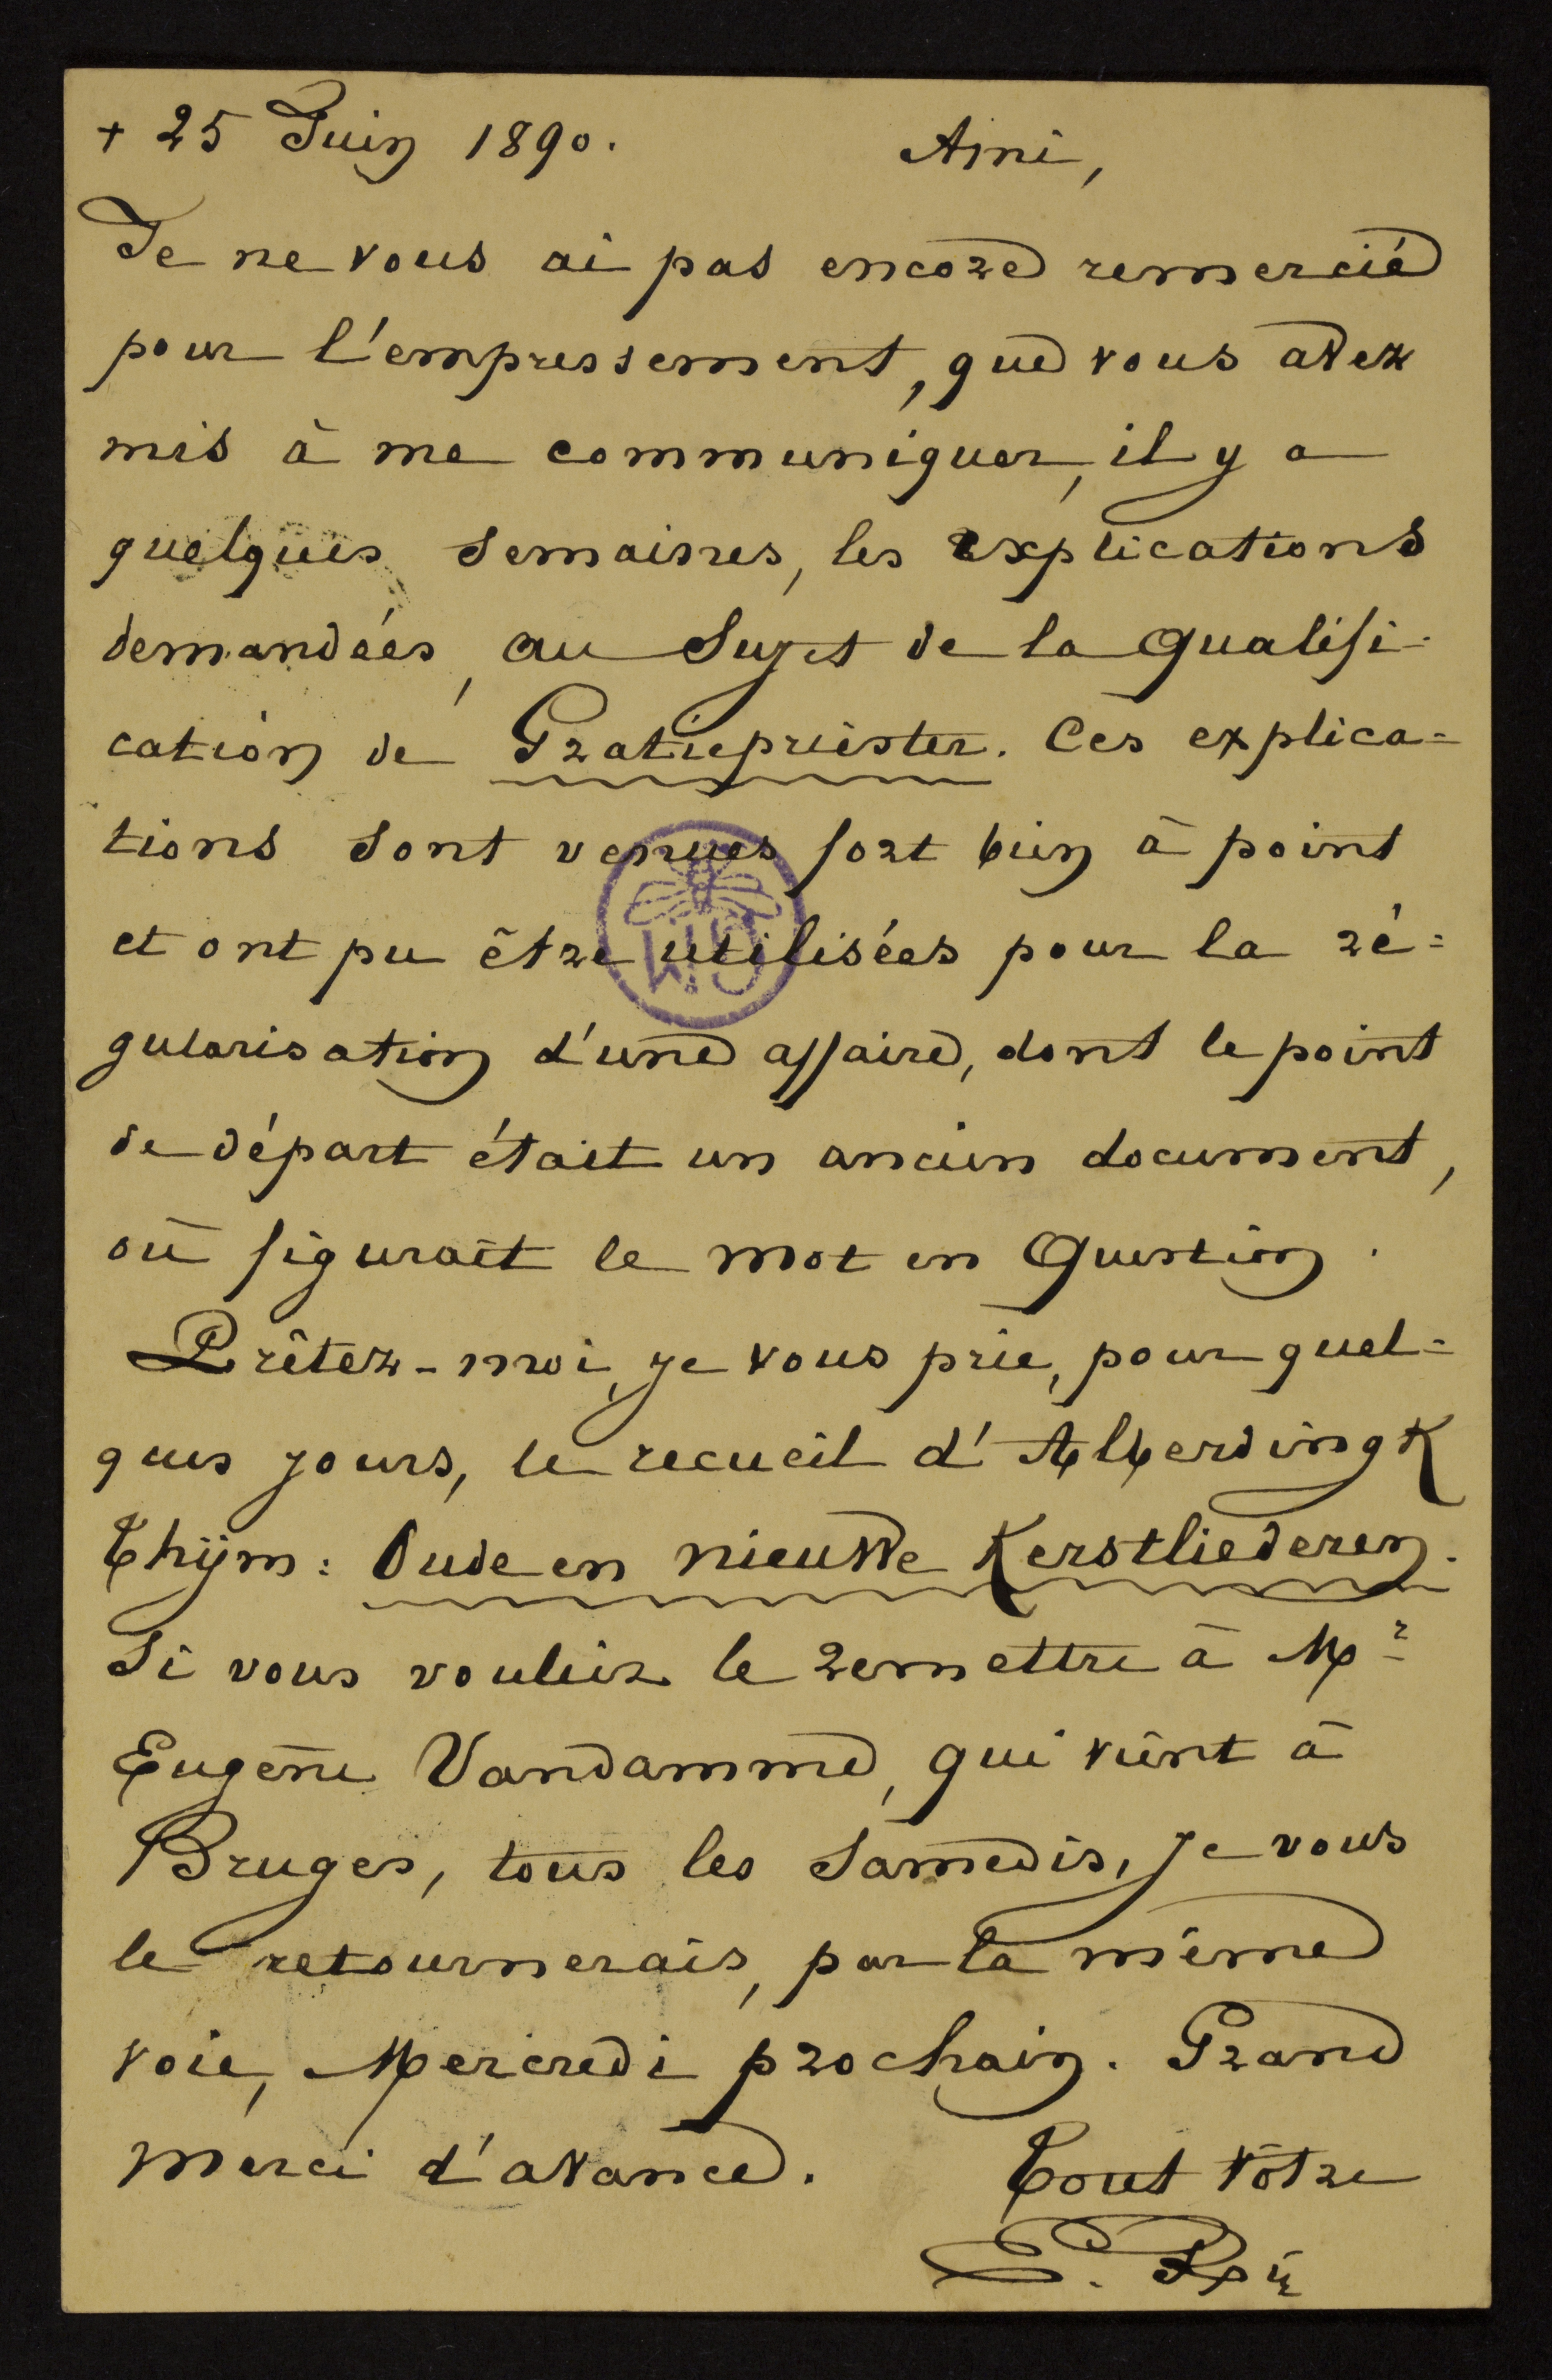 + 25 Juin 1890. Ami,
Je ne vous ai pas encore remercié
pour l'empressement, que vous avez
mis à me communiquer, il y a
quelques semaines, les explications
demandées, au sujet de la qualifi-
cation de Gratiepriester. Ces explica=
tions sont venues fort bien à point
et ont pu être utilisées pour la ré=
gularisation d'une affaire, dont le point
de départ était un ancien document,
où figurait le mot en question.
Prêtez-moi, je vous prie, pour quel=
ques jours, le recueil d'Alberdingk
Thijm: Oude en nieuwe Kerstliederen.
Si vous vouliez le remettre à Mr
Eugène Vandamme, qui vient à
Bruges, tous les Samedis, je vous
le retournerais, par la même
voie, Mercredi prochain. Grand
merci d'avance. Tout vôtre
E.